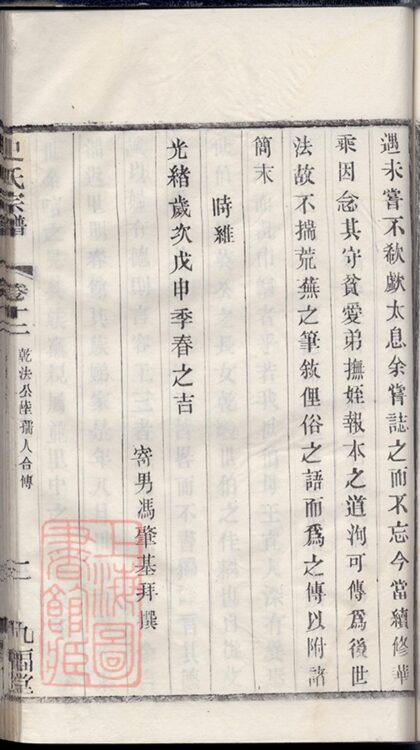 遇未嘗不欷歔太息余嘗誌之而不忘今當續修華
乘因念其守貧愛弟撫姪報本之道洵可傳為後世
法故不揣荒蕪之筆敘俚俗之語而為之傳以附諸
簡末
時維
光緒歲次戊申季春之吉
寄男馮肇基拜撰
氏宗譜
卷十二
乾法公孺人合傳
二
九福堂
上海圖書館藏